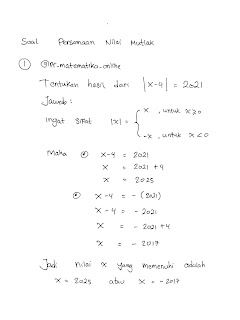 Soal Persamaan Nilai Mutlak
1 @pr_matematika_online
Tentukan hasil dari |x-4| = 2021
Jawab:
Ingat sifat |x| = { x , untuk x ≥ 0
-x , untuk x < 0
Maka * x-4 = 2021
x = 2021 + 4
x = 2025
* x-4 = - (2021)
x-4 = - 2021
x = - 2021 + 4
x = - 2017
Jadi nilai x yang memenuhi adalah
x = 2025 atau x = - 2017